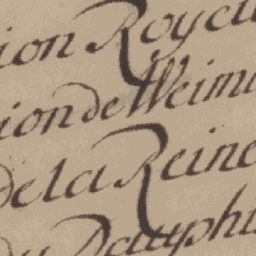 ion Royau
ion de Weimu
de la Reine
du Dauphi